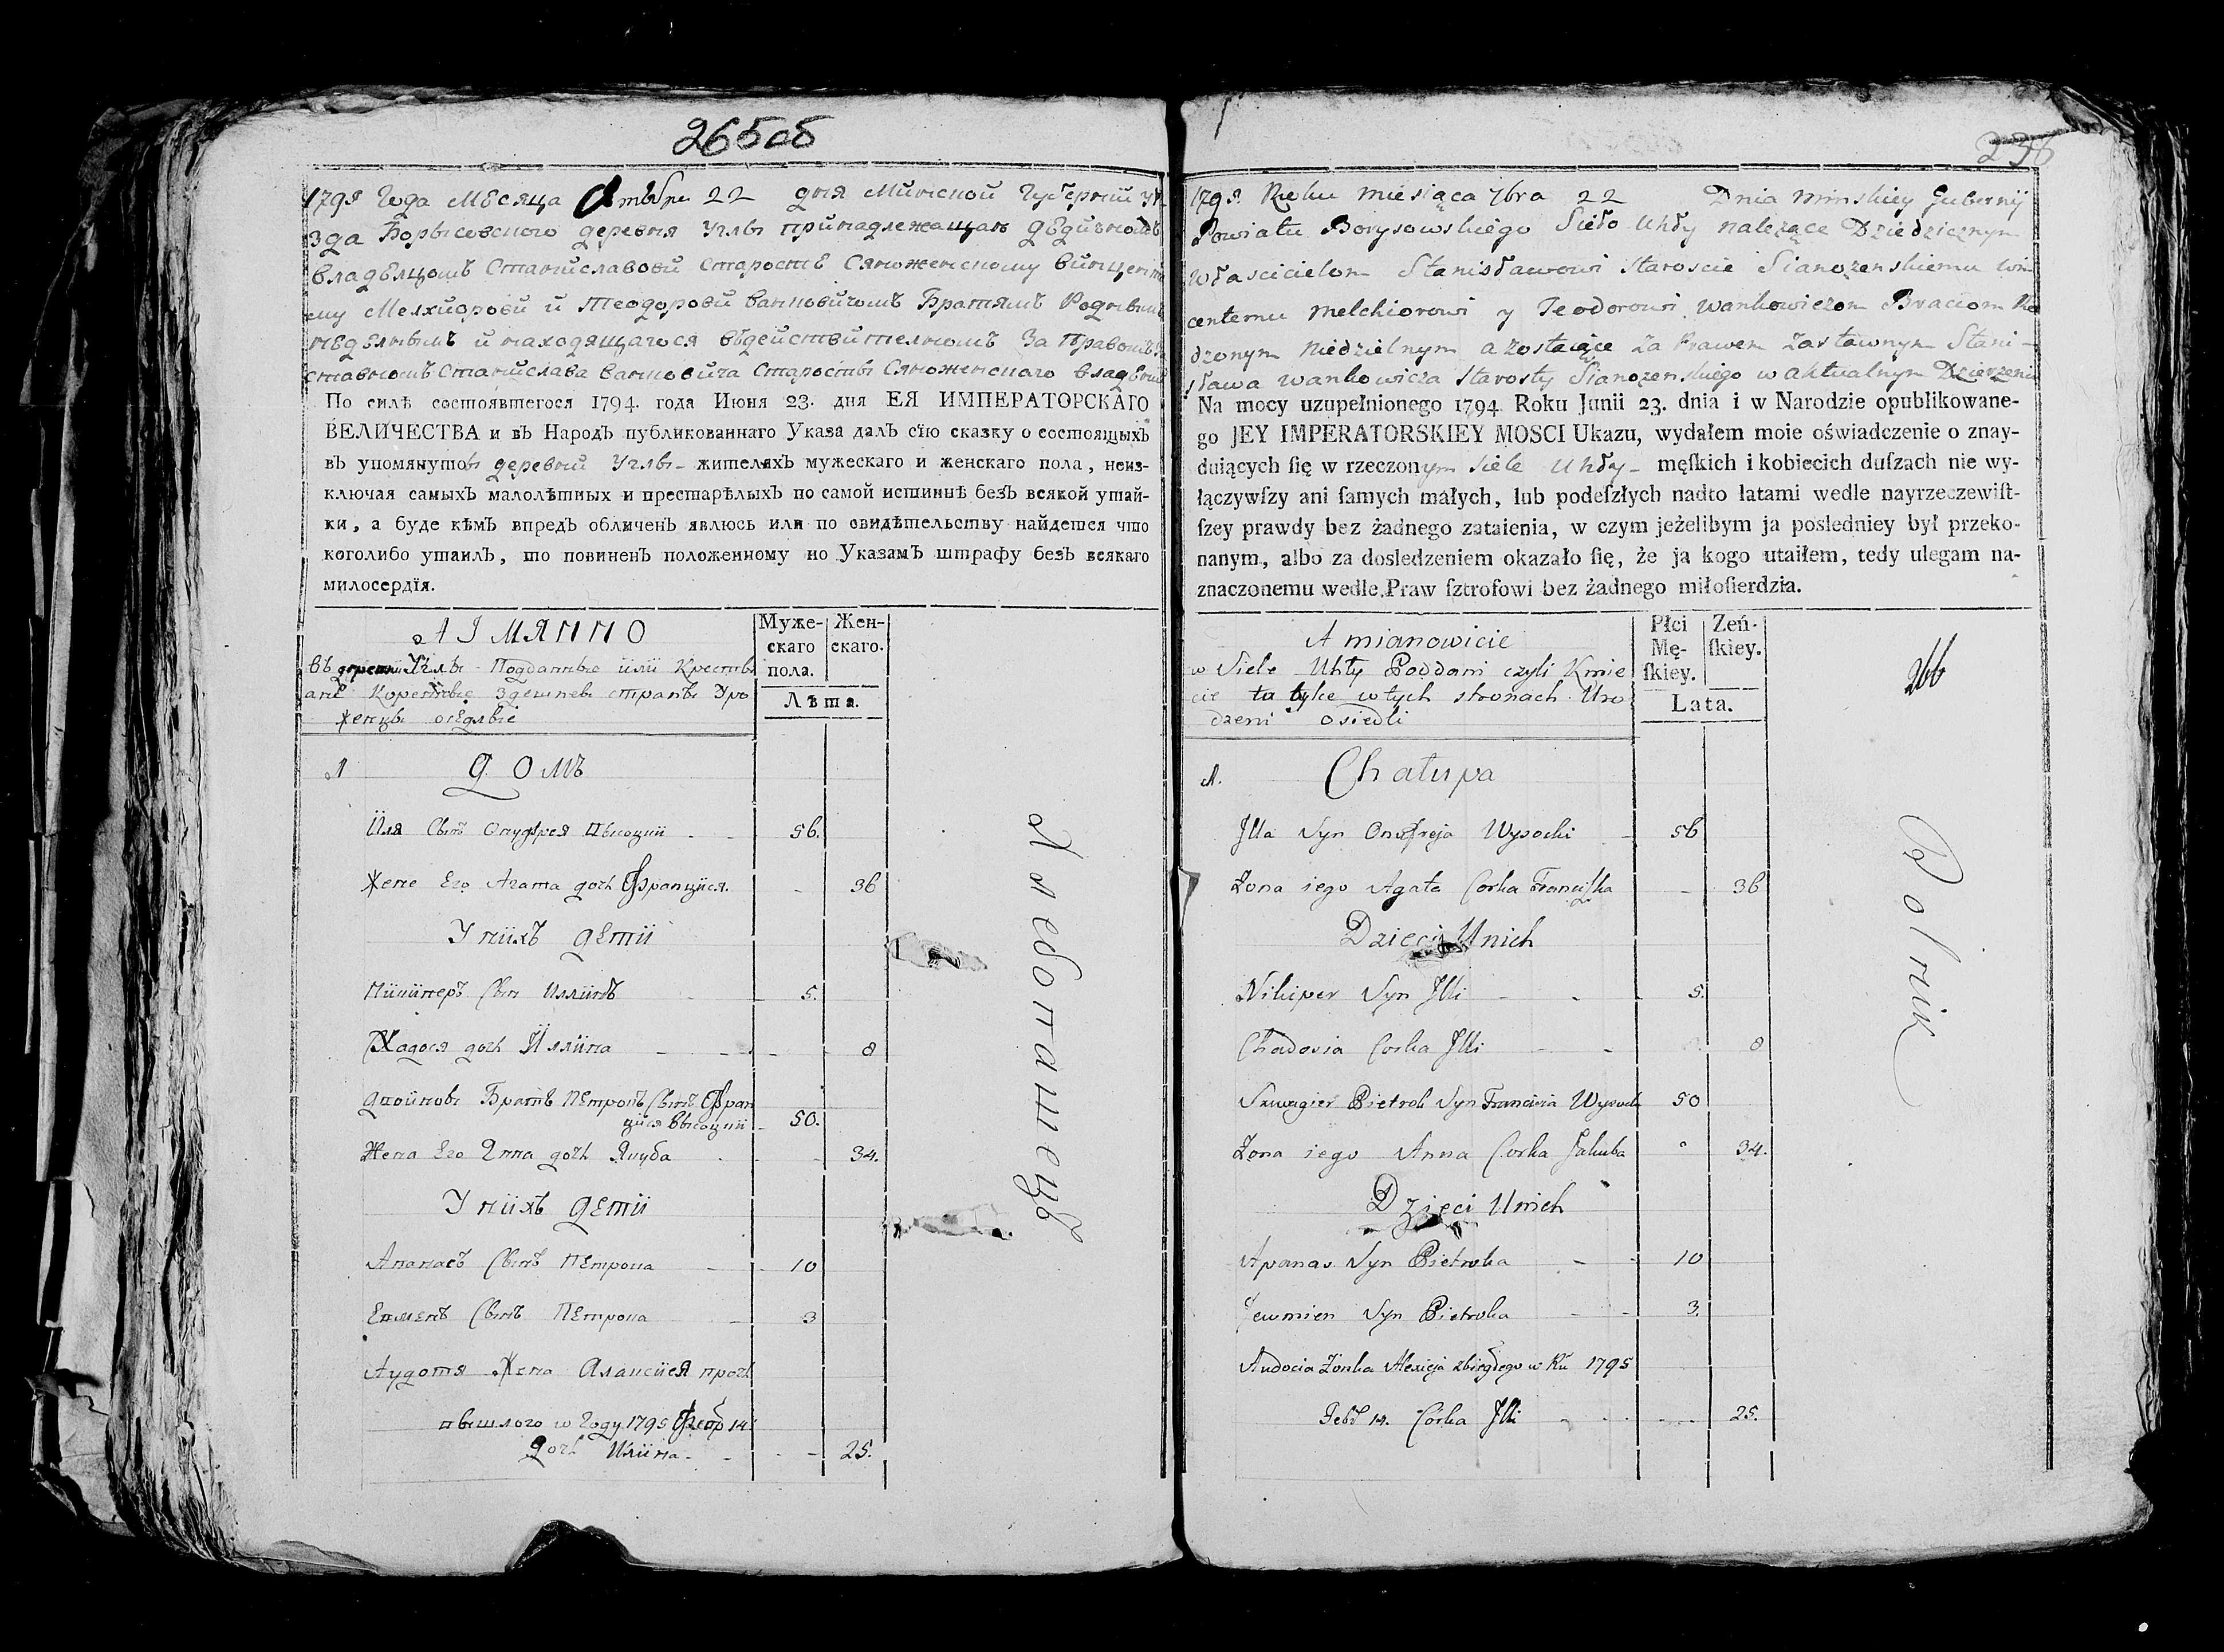 265об
1795 Года Месяца Октября 22 дня Минской Губернии Уѣ
зда Борысовского деревня Углы принадлежащая Дедичномъ
владелцомъ Станиславови Старосте Сяноженскому Винценто
му Мелхиорови и Теодорови Ванковичомъ Братямъ Роднымъ
неделнымъ и находящагося въ действителномъ За Правомъ За
ставномъ Станислава Ванковича Старосты Сяноженского владении
По силѣ состоявшегося 1794. года Июня 23. дня ЕЯ ИМПЕРАТОРСКАГО
ВЕЛИЧЕСТВА и въ Народъ публикованнаго Указа далъ сїю сказку о состоящыхъ
въ упомянутой деревни Углы - жителяхъ мужескаго и женскаго пола, неиз-
ключая самыхъ малолѣтныхъ и престарѣлыхъ по самой истиннѣ безъ всякой утай-
ки, а буде кѣмъ впредь обличенъ явлюсь или по свидѣтельству найдется что
коголибо утаилъ, то повиненъ положенному по Указамъ штрафу безъ всякаго
милосердїя.
А ІМЯННО
въ деревни Углы Подданные или Крестья
ане Коренные здешней страны Уро
женцы оседлые
Муже-
скаго
пола.
Жен-
скаго.
Лѣта.
1 Домъ
Иля Сынъ Онуфрея Высоции - 56.
Жена Его Агата дочь Францися. - 36
У нихъ дети
Никиперъ Сын Иллинъ - 5.
Хадося дочь Иллина - - - - 8
Двойновы Братъ Петрокъ Сынъ Фран
циса Высоции - 50.
Жена Его Анна дочь Якуба - 34.
У нихъ дети
Апанасъ Сынъ Петрока - 10
Евменъ Сынъ Петрока - 3
Аудотя Жена Алаксiея прочь
вышлого w Году 1795 Февр 14
Дочь Илиина - - - - 25.
Хлебопашецъ
236
1795. Roku miesiąca 7bra 22 Dnia Minskiey Gubernij
Powiatu Borysowskiego Sieło Uhły nalezące Dziedzicznym
Włascicielom Stanisławowi Staroscie Sianozenskiemu win
centemu Melchiorowi y Teodorowi Wankowiczom Braciom Ro
dzonym Niedzielnym a zostaiące za Prawem zastawnym Stani-
sława Wankowicza Starosty Sianozenskiego w aktualnym Dzierzeniu
Na mocy uzupełnionego 1794 Roku Junii 23. dnia i w Narodzie opublikowane-
go JEY IMPERATORSKIEY MOSCI Ukazu, wydałem moie oświadczenie o znay-
duiących ſię w rzeczonym siele Uhły - męſkich i kobiecich duſzach nie wy-
łączywſzy ani ſamych małych, lub podeſzłych nadto latami wedle nayrzeczewiſt-
ſzey prawdy bez żadnego zataienia, w czym jeżelibym ja posledniey był przeko-
nanym, albo za dosledzeniem okazało ſię, że ja kogo utaiłem, tedy ulegam na-
znaczonemu wedle Praw ſztrofowi bez żadnego miłoſierdzia.
A mianowicie
w Siele Uhły Poddani czyli Kmie
cie tu tylce w tych stronach Uro
dzeni osiedli
Płci
Mę-
ſkiey.
Zeń-
ſkiey.
Lata.
266
1. Chałupa
Jlla Syn Onufreja Wysocki - 56
Zona iego Agata Corka Franciſka - 36
Dzieci Unich
Nikiper Syn Jlli - - - 5.
Chadosia Corka Jlli - - 8
Szwagier Pietrok Syn Francisia Wysocki 50
Zona iego Anna Corka Jakuba 34.
Dzieci Unich
Apanas Syn Pietroka - - 10
Jewmien Syn Pietroka - - 3.
Audocia Zonka Alexieja zbiegłego w Ru 1795
Febr 14. Corka Jlli - - - 25.
Rolnik